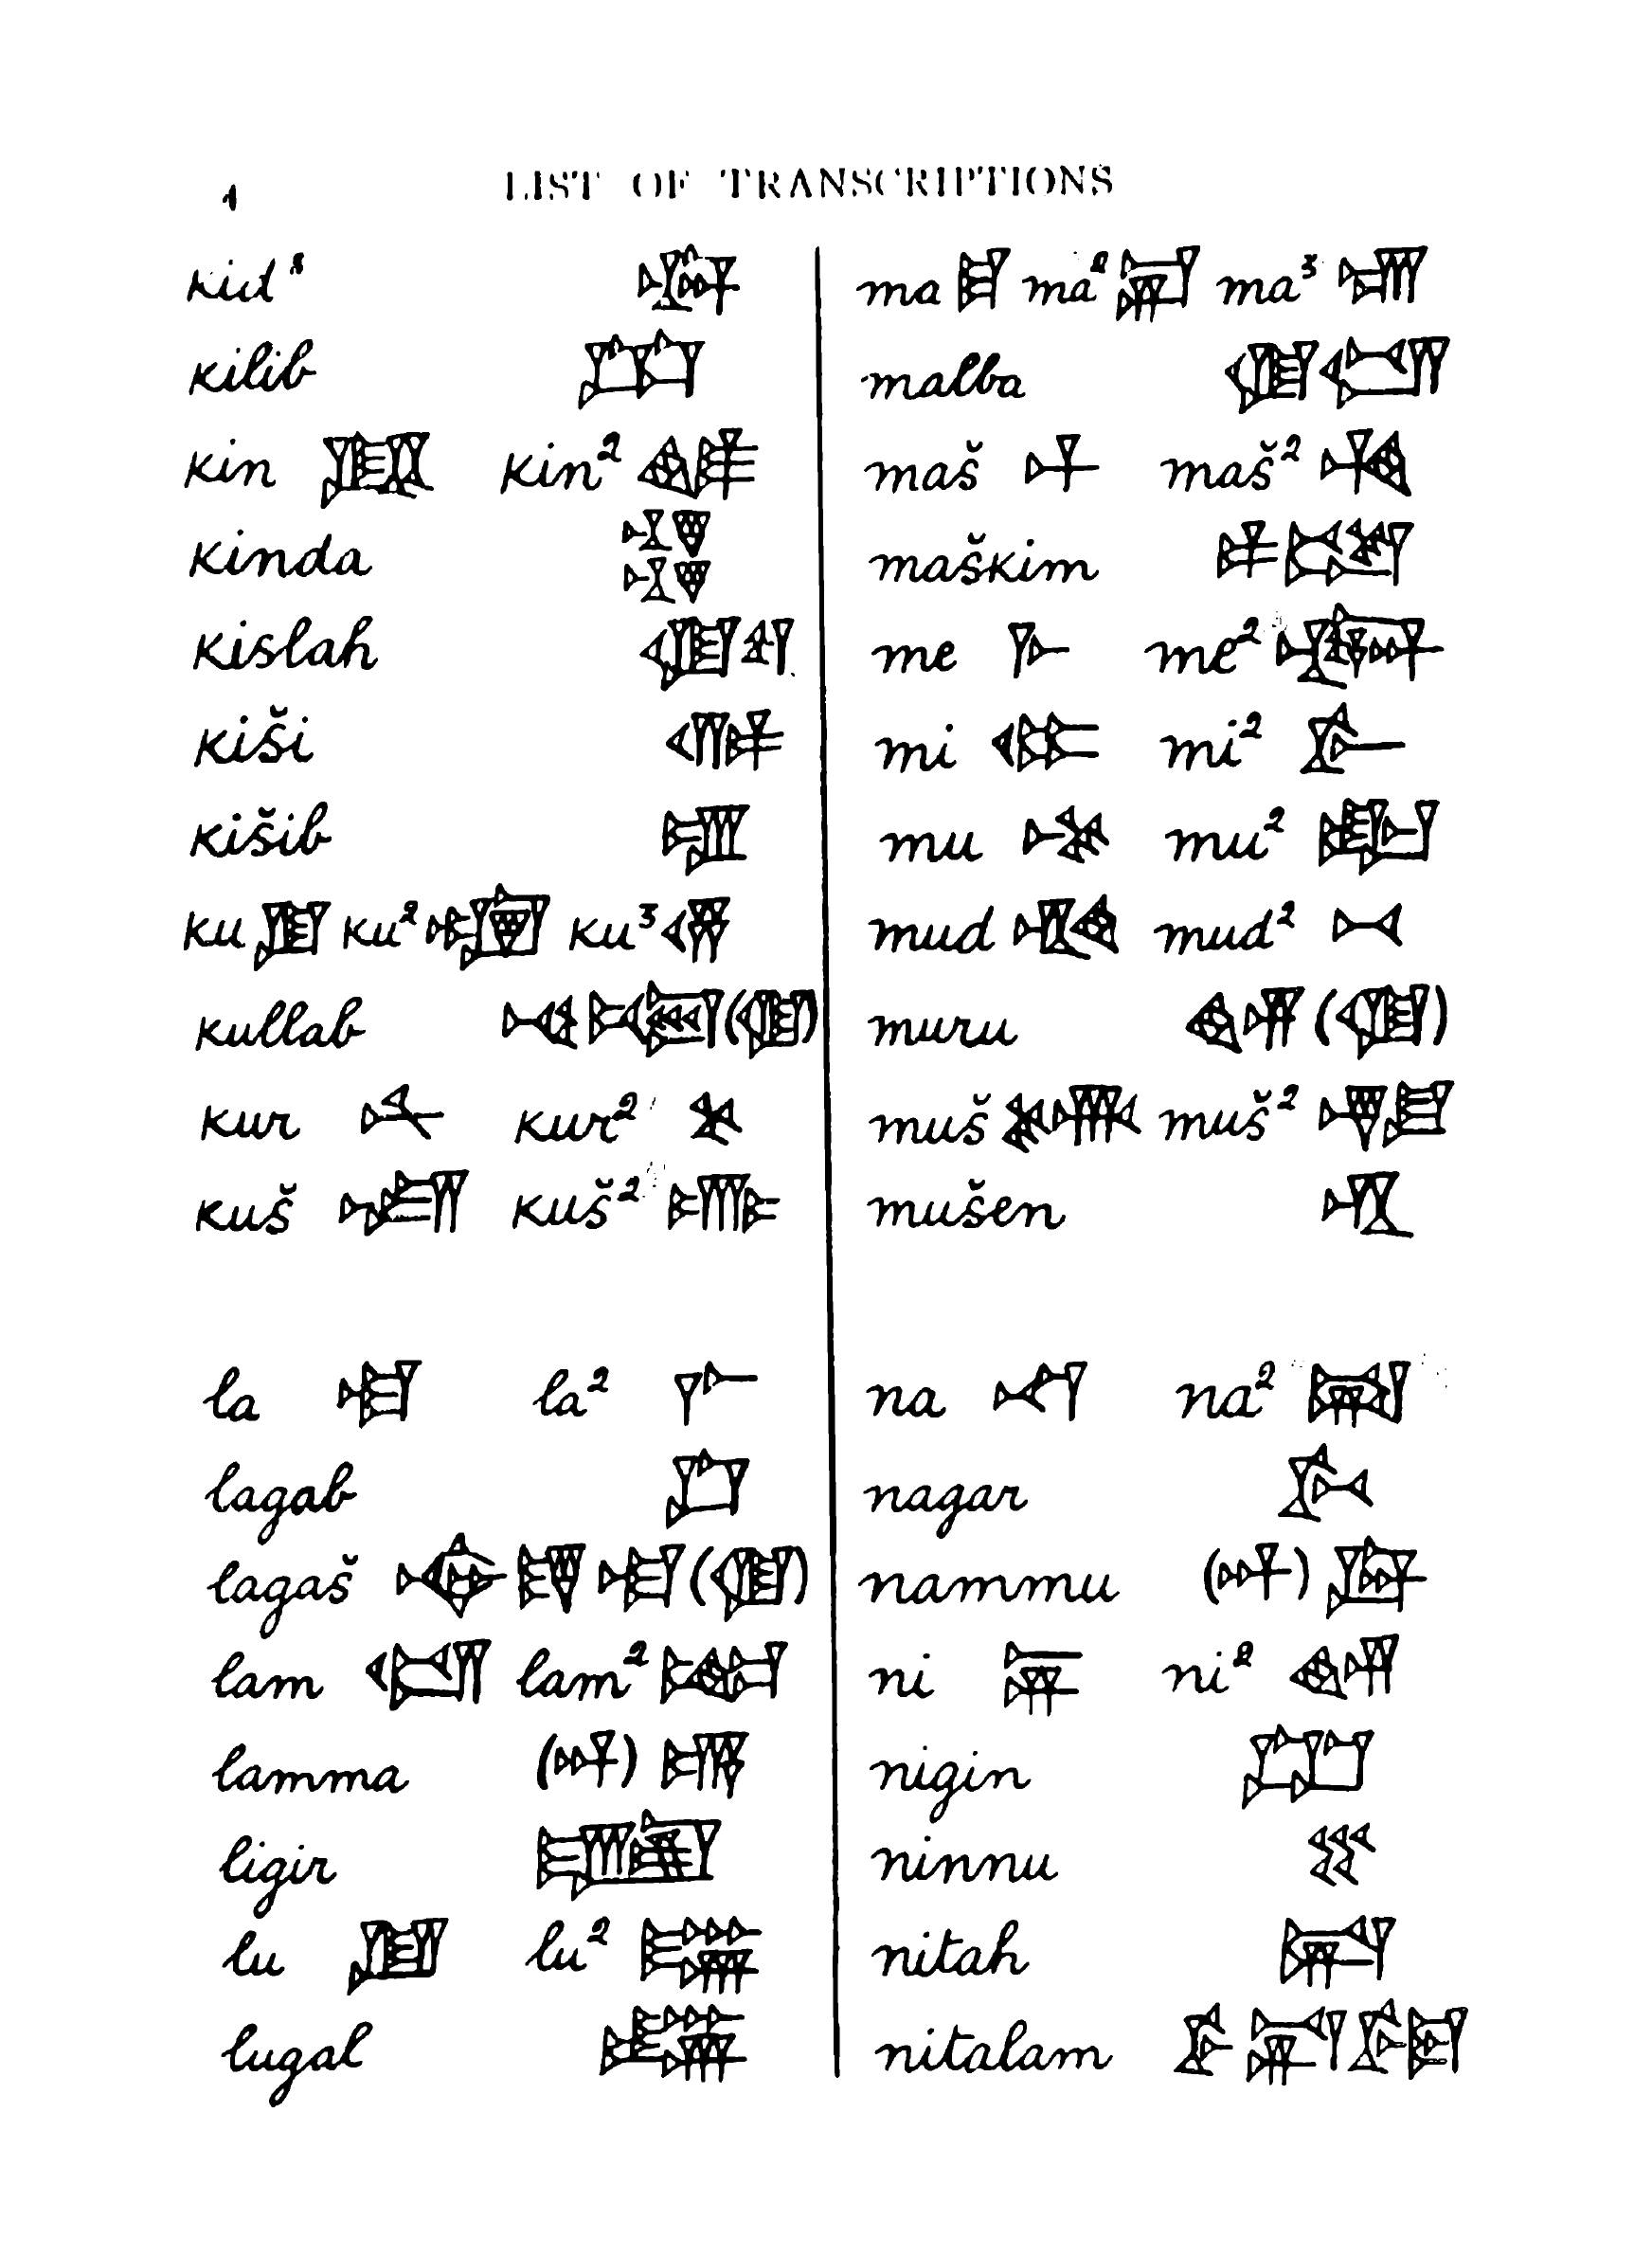 1 LIST OF TRANSCRIPTIONS
kid³
kilib
kin 𒆥 kin²
kinda
kislah 𒆠𒌓
kiši
kišib 𒈩
ku 𒆪 ku² ku³ 𒆬
kullab (𒆠)
kur 𒉽 kur² 𒆳
kuš 𒋢 kuš²
la 𒆷 la² 𒇲
lagab 𒆸
lagaš 𒉢𒁓𒆷(𒆠)
lam 𒇴 lam²
lamma (𒀭)𒆗
ligir
lu 𒇻 lu² 𒇽
lugal 𒈗
ma 𒈠 ma² 𒈣 ma³
malba 𒆠𒇴
maš 𒈦 maš² 𒈧
maškim
me 𒈨 me²
mi 𒈪 mi² 𒊩
mu 𒈬 mu² 𒊬
mud mud² 𒁁
muru 𒅎(𒆠)
muš muš²
mušen 𒄷
na 𒈾 na² 𒈿
nagar 𒉄
nammu (𒀭)
ni 𒉌 ni² 𒅎
nigin
ninnu 𒐐
nitah
nitalam